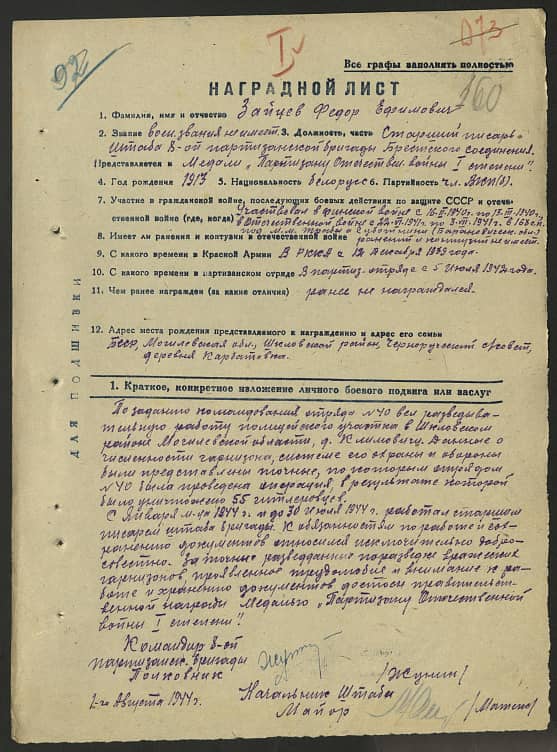 92
I
Все графы заполнять полностью
160
НАГРАДНОЙ ЛИСТ
1. Фамилия, имя и отчество Зайцев Федор Ефимович
2. Звание воен. звания не имеет. 3. Должность, часть Старший писарь
штаба 8-ой партизанской бригады Брестского соединения.
Представляется к Медали „Партизану Отечествен. войны I степени".
4. Год рождения 1913 5. Национальность белорус 6. Партийность чл. ВКП(б).
7. Участие в гражданской войне, последующих боевых действиях по защите СССР и отече-
ственной войне (где, когда) Участвовал в финской войне с
в Отечественной войне с
8. Имеет ли ранения и контузии в отечественной войне ранений и контузий не имеет.
9. С какого времени в Красной Армии В РККА с 12 декабря 1939 года.
10. С какого времени в партизанском отряде В партиз. отряде с 5 июля 1942 года.
11. Чем ранее награжден (за какие отличия) ранее не награждался.
12. Адрес места рождения представляемого к награждению и адрес его семьи
БССР, Могилевская обл., Шкловский район, Чернорученский с/совет,
деревня
ДЛЯ ПОДШИВКИ
1. Краткое, конкретное изложение личного боевого подвига или заслуг
По заданию командования отряда №40 вел разведыва-
тельную работу полицейского участка в Шкловском
районе Могилевской области, д. Климовичи. Данные о
численности гарнизона, системе его охраны и обороны
были представлены точные, по которым отрядом
№40 была проведена операция, в результате которой
было уничтожено 55 гитлеровцев.
С Января м-ца 1944 г. и до 30 Июля 1944 г. работал старшим
писарем штаба бригады. К обязанностям по работе и сох-
ранению документов относился исключительно добро-
совестно. За точные разведданные по разведке вражеских
гарнизонов, проявленное трудолюбие и внимание к ра-
боте и хранению документов достоин правительст-
венной награды Медалью „Партизану Отечественной
войны I степени".
Командир 8-ой
партизанск. бригады
Полковник /Жунин/
1-го Августа 1944 г. Начальник Штаба
Майор